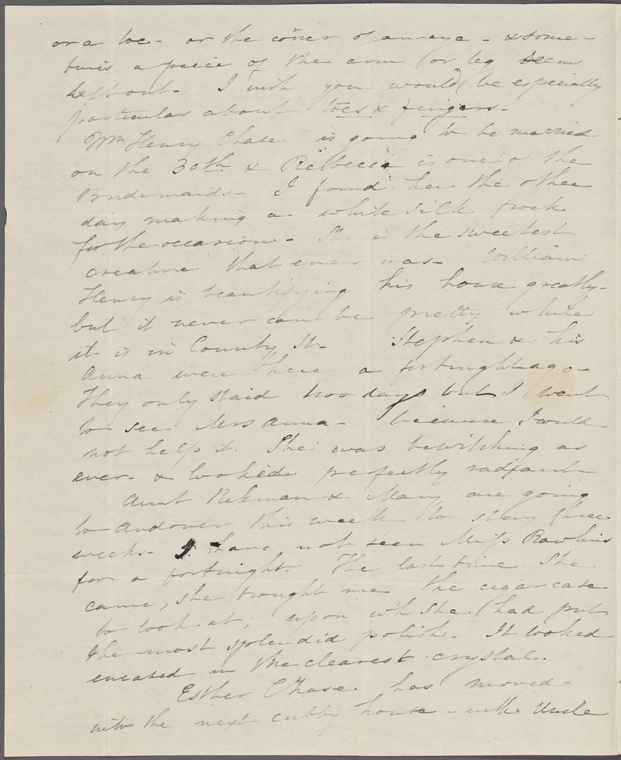 or a toe - or the corner of an eye - & some-
times a piece of the arm (or leg seems
left out - I wish you would be especially
particular about toes & fingers.
Wm Henry Chase is going to be married
on the 30th & Rebecca is one of the
Bridemaids - I found her the other
day making a white silk frock
for the occasion - She is the sweetest
creature that ever was - William
Henry is beautifying his house greatly -
but it never can be pretty while
it is in County St - Stephen & his
Anna were here a fortnight ago -
They only staid two days but I went
to see Mrs Anna - because I could
not help it. She was bewitching as
ever - & looked perfectly radiant -
Aunt & Mary are going
to Andover this week to stay three
weeks - I have not seen Miss Rawlins
for a fortnight. The last time she
came, she brought me the cigar case
to look at, upon wh she had put
the most splendid polish - It looked
encased in the clearest crystal.
Esther Chase has moved
into the next cubby house - with Uncle